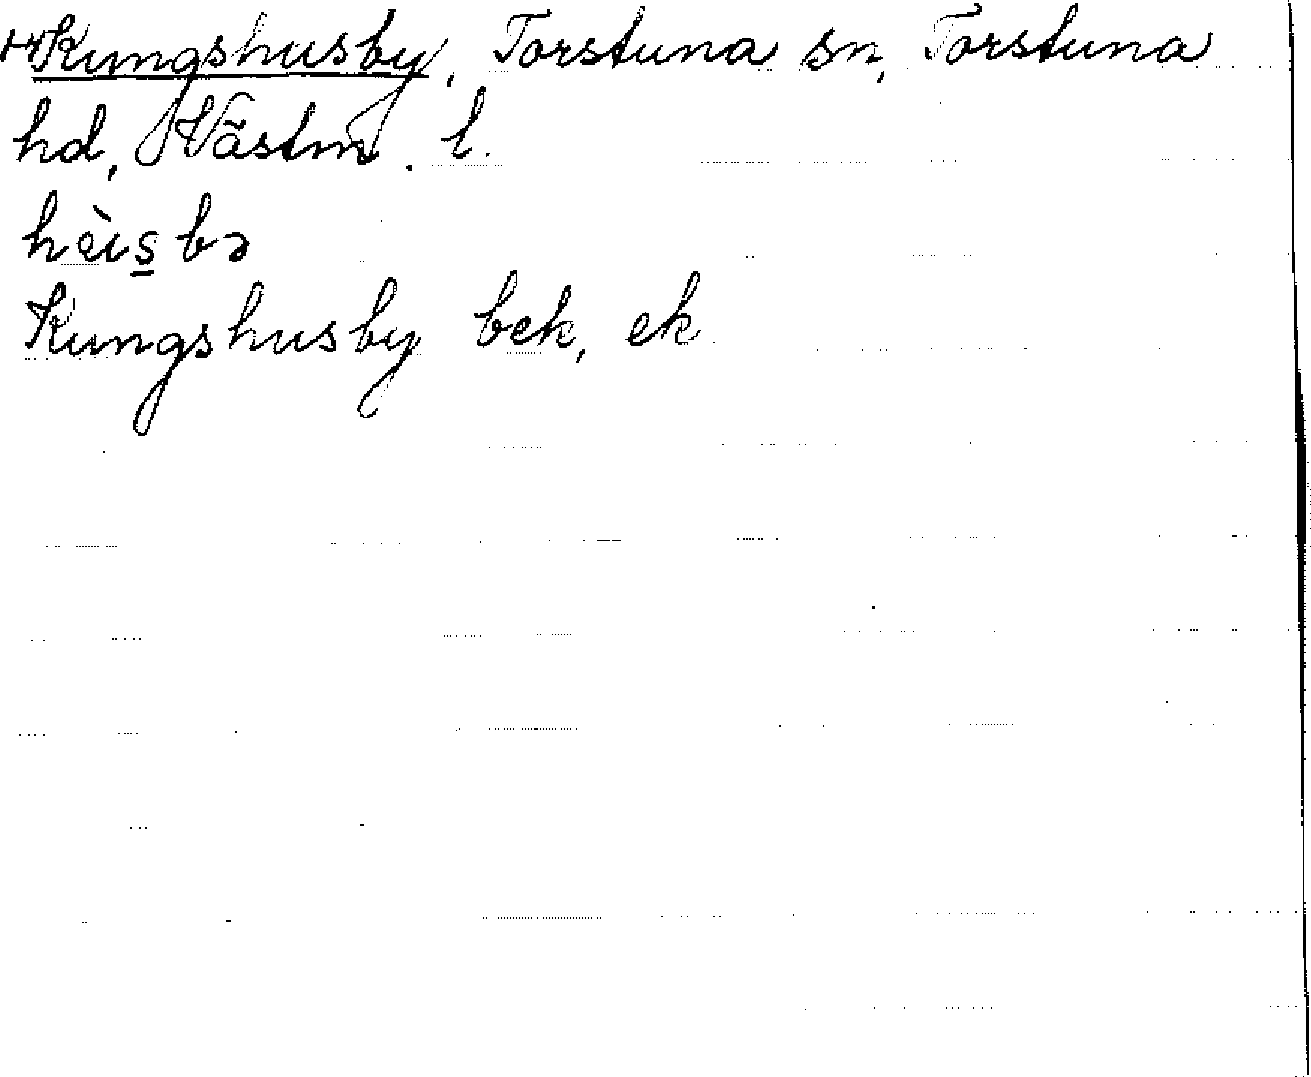 Kungshusby, Torstuna sn, Torstuna
hd, Västm. l.
Kungshusby bek, ek